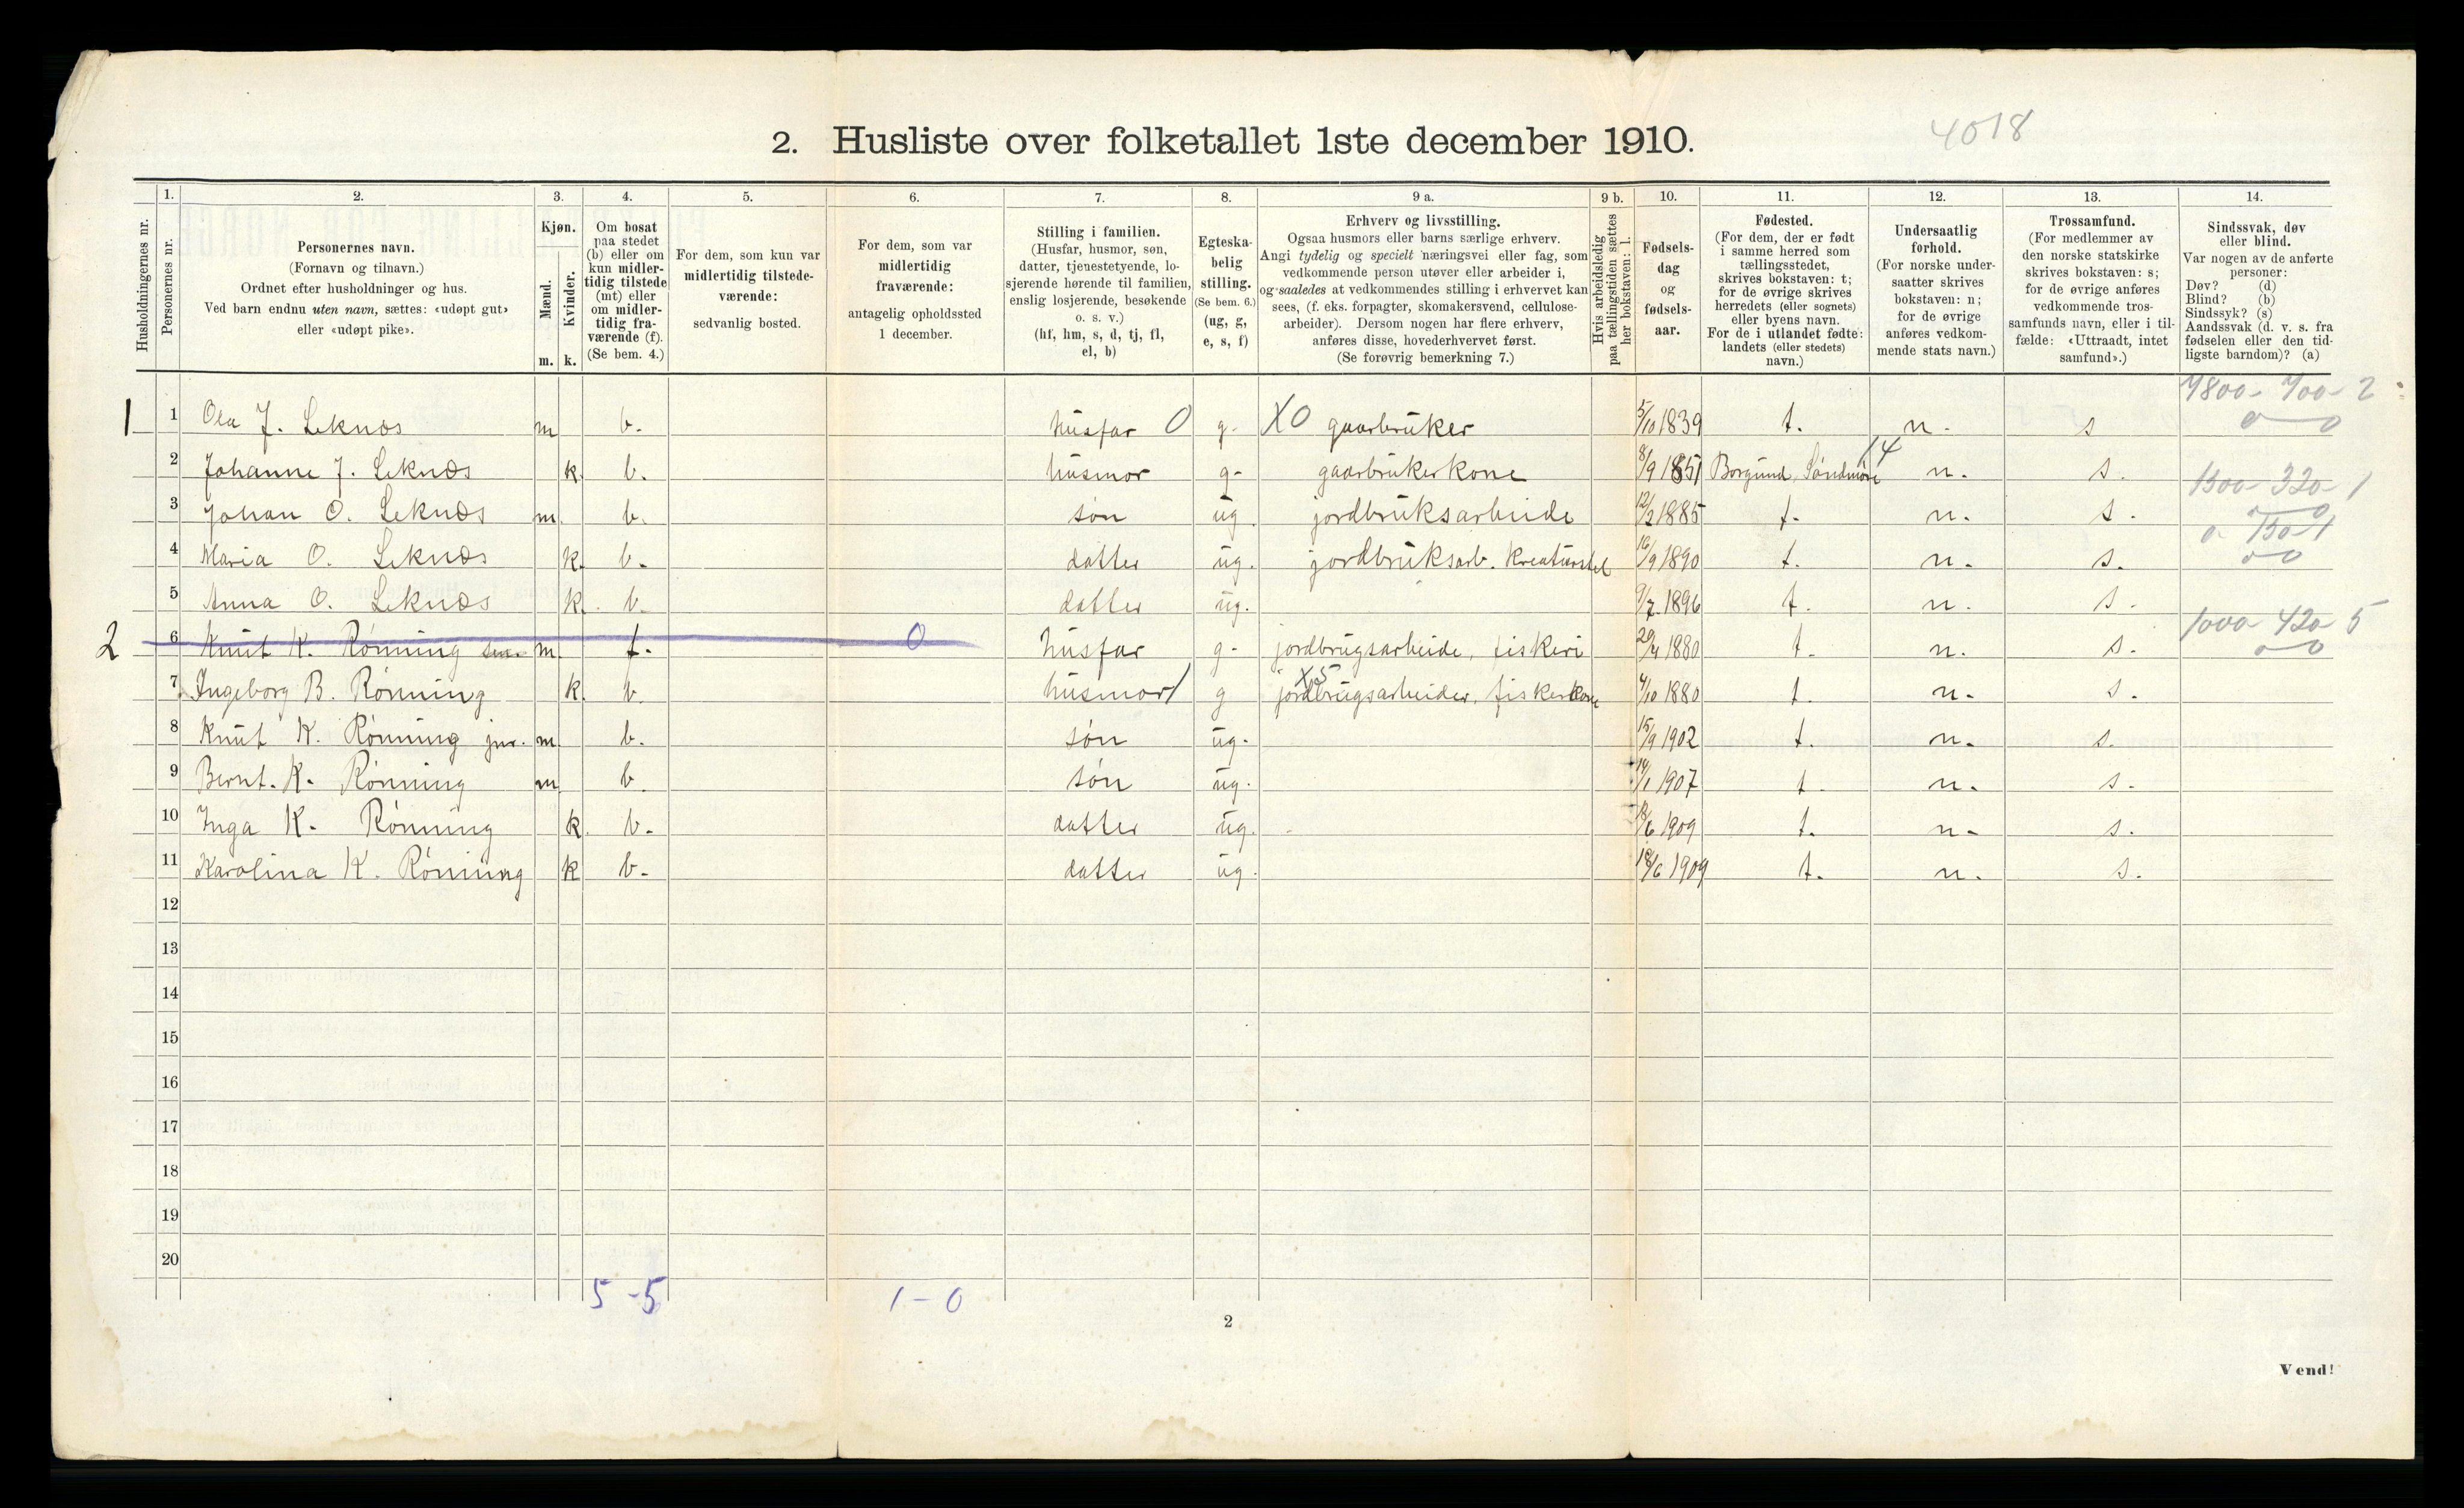 4018
2. Husliste over folketallet 1ste december 1910.
Husholdningernes nr.
1.
Personernes nr.
2.
Personernes navn.
(Fornavn og tilnavn.)
Ordnet efter husholdninger og hus.
Ved barn endnu uten navn, sættes: «udøpt gut»
eller «udøpt pike».
3.
Kjøn.
Mænd.
Kvinder.
m. k.
4.
Om bosat
paa stedet
(b) eller om
kun midler-
tidig tilstede
(mt) eller
om midler-
tidig fra-
værende (f).
(Se bem. 4.)
5.
For dem, som kun var
midlertidig tilstede-
værende:
sedvanlig bosted.
6.
For dem, som var
midlertidig
fraværende:
antagelig opholdssted
1 december.
7.
Stilling i familien.
(Husfar, husmor, søn,
datter, tjenestetyende, lo-
sjerende hørende til familien,
enslig losjerende, besøkende
o. s. v.)
(hf, hm, s, d, tj, fl,
el, b)
8.
Egteska-
belig
stilling.
(Se bem. 6.)
(ug, g,
e, s, f)
9 a.
Erhverv og livsstilling.
Ogsaa husmors eller barns særlige erhverv.
Angi tydelig og specielt næringsvei eller fag, som
vedkommende person utøver eller arbeider i,
og saaledes at vedkommendes stilling i erhvervet kan
sees, (f. eks. forpagter, skomakersvend, cellulose-
arbeider). Dersom nogen har flere erhverv,
anføres disse, hovederhvervet først.
(Se forøvrig bemerkning 7.)
9 b.
Hvis arbeidsledig
paa tællingstiden sættes
her bokstaven: l.
10.
Fødsels-
dag
og
fødsels-
aar.
11.
Fødested.
(For dem, der er født
i samme herred som
tællingsstedet,
skrives bokstaven: t;
for de øvrige skrives
herredets (eller sognets)
eller byens navn.
For de i utlandet fødte:
landets (eller stedets)
navn.)
12.
Undersaatlig
forhold.
(For norske under-
saatter skrives
bokstaven: n;
for de øvrige
anføres vedkom-
mende stats navn.)
13.
Trossamfund.
(For medlemmer av
den norske statskirke
skrives bokstaven: s;
for de øvrige anføres
vedkommende tros-
samfunds navn, eller i til-
fælde: «Uttraadt, intet
samfund».)
14.
Sindssvak, døv
eller blind.
Var nogen av de anførte
personer:
Døv? (d)
Blind? (b)
Sindssyk? (s)
Aandssvak (d. v. s. fra
fødselen eller den tid-
ligste barndom)? (a)
1 1 Ola J. Leknæs m b. husfar 0 g. X0 gaarbruker 5/10 1839 t. n. s 7800 - 700 - 2
2 Johanne J. Leknæs k. b. husmor g- gaarbrukerkone 8/9 1851 Borgund, Söndmöre 14 n. s.
3 Johan O. Leknæs m. b. søn ug. jordbruksarbeide 12/2 1885 t. n. s. 1500 - 320 - 1
4 Maria O. Leknæs k. b. datter ug. jordbruksarb. kreaturstel 16/9 1890 t. n. s. 0 - 150 - 1
5 Anna O. Leknæs k. b. datter ug. 9/7 1896 t. n. s.
2 6 Knut K. Rönning sen. m. f. 0 husfar g- jordbrugsarbeide, fiskeri 20/4 1880 t. n. s. 1000 - 420 - 5
7 Ingeborg B. Rönning k. b. husmor 1 g X5 jordbrugsarbeider, fiskerkone 4/10 1880 t. n. s.
8 Knut K. Rönning jnr. m. b. søn ug. 15/9 1902 t. n. s.
9 Bernt. K. Rönning m b. søn ug. 14/1 1907 t. n. s.
10 Inga K. Rönning k. b. datter ug. 18/6 1909 t. n- s.
11 Karolina K. Rönning k b. datter ug. 18/6 1909 t. n. s.
12
13
14
15
16
17
18
19
20
5 - 5 1 - 0
2
Vend!